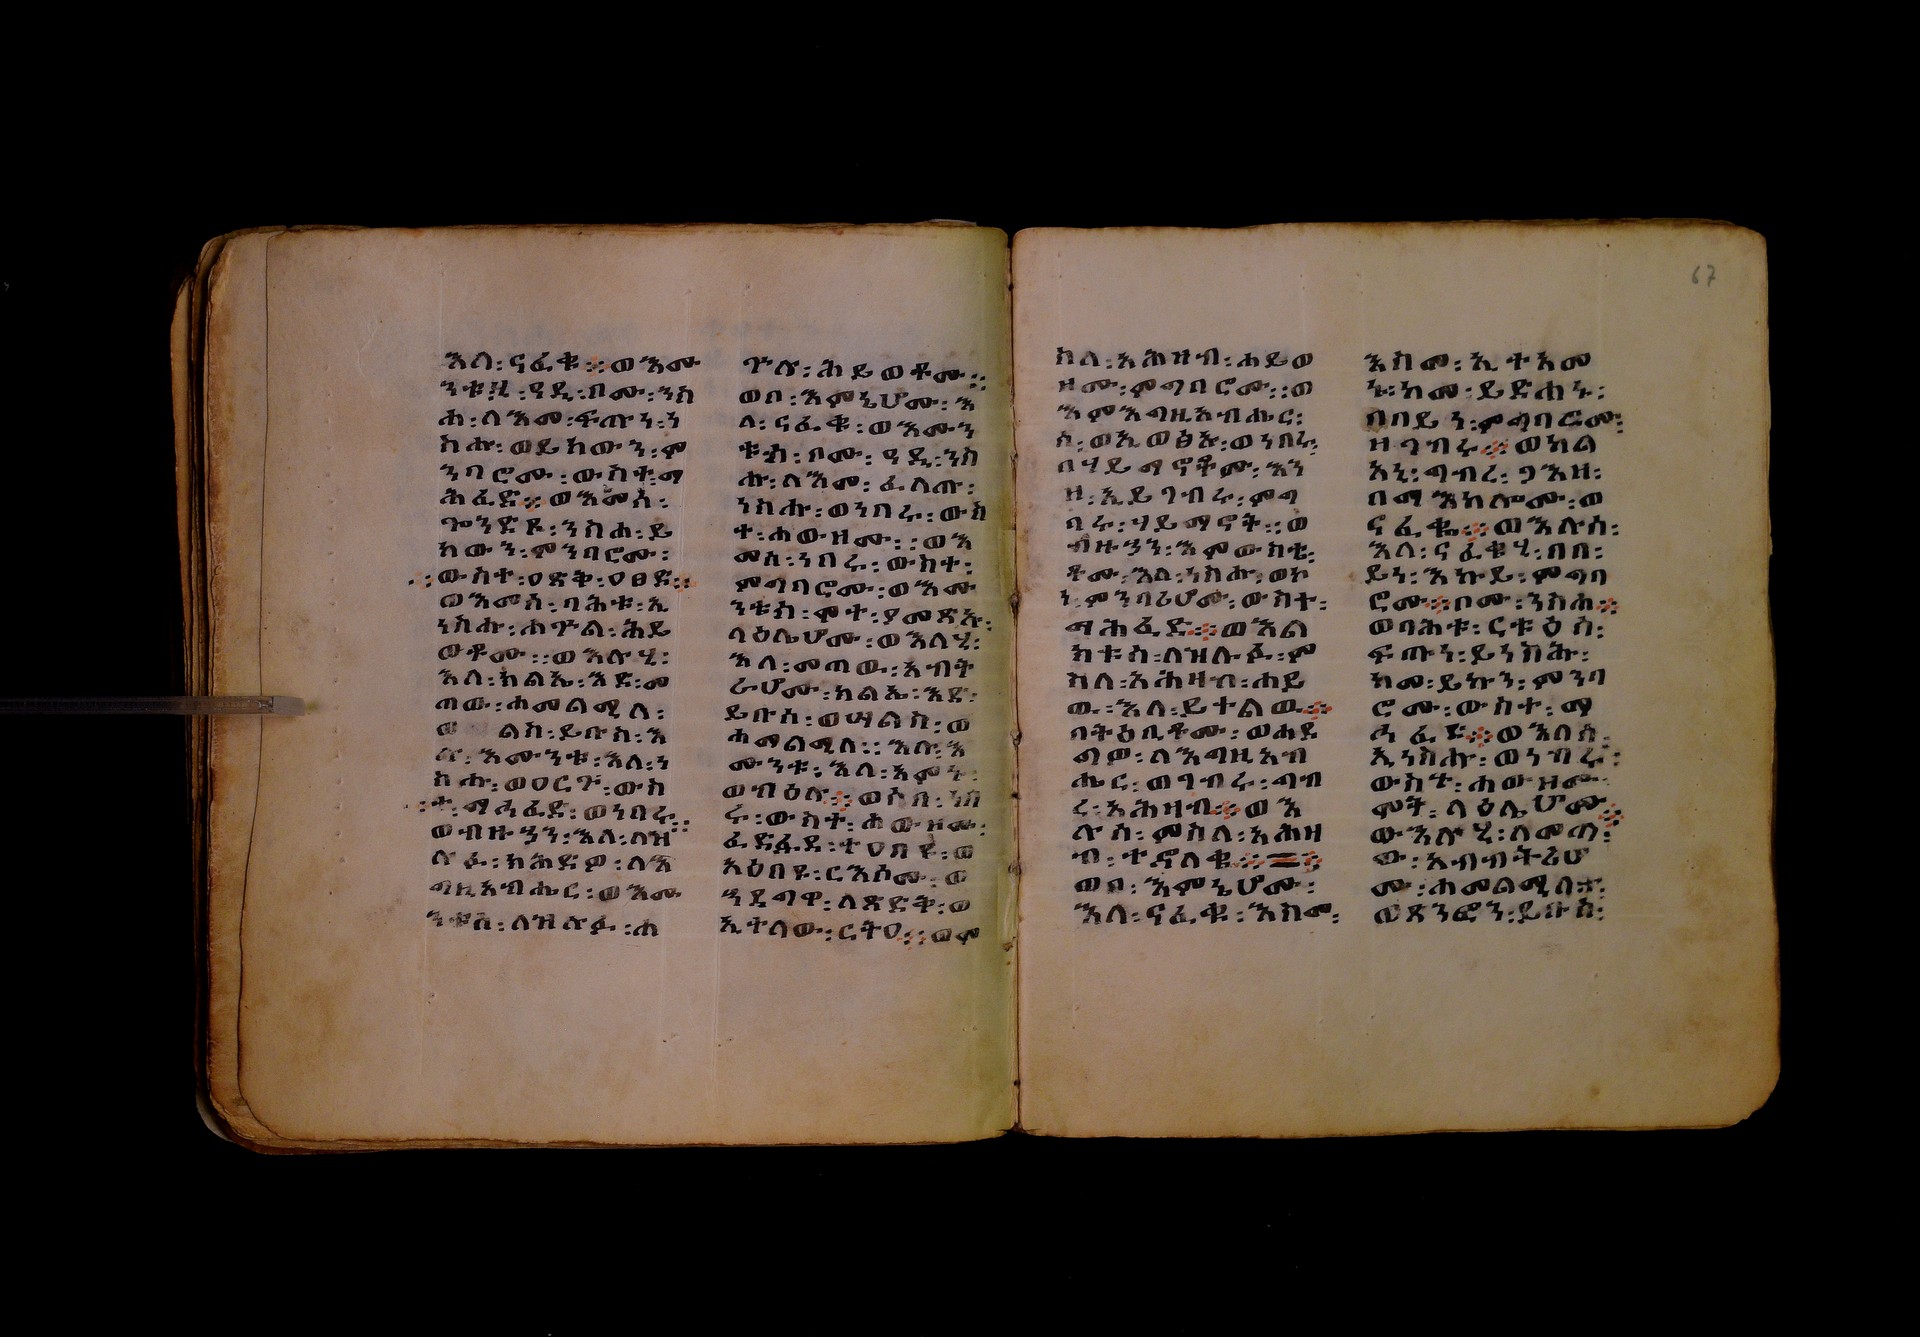 እለ፡ ናፈቁ፡፡ ወእሙ
ንቱሂ፡ ዓዲ፡ ቦሙ፡ ንስ
ሐ፡ ለእመ፡ ፍጡነ፡ ነ
ስሑ፡ ወይከውን፡ ም
ንባሮሙ፡ ውስተ፡ ማ
ሕፈድ፡፡ ወእመሰ፡
ጐንደዩ፡ ንስሐ፡ ይ
ከውን፡ ምንባሮሙ፡
ውስተ፡ ዐጽቅ፡ ዐፀድ፡፡
ወእመሰ፡ ባሕቱ፡ ኢ
ነስሑ፡ ሐጕል፡ ሕይ
ወቶሙ፡፡ ወእሉሂ፡
እለ፡ ክልኤ፡ እደ፡ መ
ጠው፡ ሐመልሚለ፡
ልከ፡ ይቡስ፡ እ
ሉ፡ እሙንቱ፡ እለ፡ ነ
ስሑ፡ ወዐርጉ፡ ውስ
ተ፡ ማሕፈድ፡ ወነበሩ፡፡
ወብዙኃን፡ እለ፡ ለዝ
ሉፉ፡ ክሕደዎ፡ ለእ
ግዚአብሔር፡ ወእሙ
ንቱሰ፡ ለዝሉፉ፡ ሐ
ጕሉ፡ ሕይወቶሙ፡፡
ወቦ፡ እምኔሆሙ፡ እ
ለ፡ ናፈቁ፡ ወእሙን
ቱሰ፡ ቦሙ፡ ዓዲ፡ ንስ
ሐ፡ ለእመ፡ ፈለጡ፡
ነስሑ፡ ወነበሩ፡ ውስ
ተ፡ ሐውዘሙ፡፡ ወእ
መሰ፡ ነበሩ፡ ውስተ፡
ምግባሮሙ፡ ወእሙ
ንቱሰ፡ ሞተ፡ ያመጽኡ፡
ባዕሌሆሙ፡ ወእለሂ፡
እለ፡ መጠው፡ አብት
ራሆሙ፡ ክልኤ፡ እደ፡
ይቡሰ፡ ወሣልሰ፡ ወ
ሐማልሚለ፡፡ እሉ፡ እ
ሙንቱ፡ እለ፡ አምኑ፡
ወብዕሉ፡፡ ወሶበ፡ ነበ
ሩ፡ ውስተ፡ ሐውዘሙ፡
ፈድፋደ፡ ተዐበዩ፡ ወ
አዕበዩ፡ ርእሶሙ፡ ወ
ኀደግዋ፡ ለጽድቅ፡ ወ
ኢተለው፡ ርትዐ፡፡ ወም
ስለ፡ አሕዛብ፡ ሐይወ
ዘሙ፡ ምግባሮሙ፡፡ ወ
እምእግዚአብሔር፡
ሰ፡ ወኢወፅኡ፡ ወነበሩ፡
በሃይማኖቶሙ፡ እን
ዘ፡ ኢይገብሩ፡ ምግ
ባሩ፡ ሃይማኖት፡፡ ወ
ብዙኃን፡ እምውስቴ፡
ቶሙ፡ እለ፡ ነስሑ፡ ወኮ
ነ፡ ምንባሪሆሙ፡ ውስተ፡
ማሕፈድ፡፡ ወእል
ክቱሰ፡ ለዝሉፉ፡ ም
ስለ፡ አሕዛብ፡ ሐይ
ዉ፡ እለ፡ ይተልዉ፡፡
በትዕቢቶሙ፡ ወሐደ
ግዎ፡ ለእግዚአብ
ሔር፡ ወገብሩ፡ ግብ
ረ፡ አሕዛብ፡፡ ወእ
ሉሰ፡ ምስለ፡ አሕዛ
ብ፡ ተኆለቁ፡፡
ወቦ፡ እምኔሆሙ፡
እለ፡ ናፈቁ፡ እስመ፡
እስመ፡ ኢተአመ
ኑ፡ ከመ፡ ይድሐኑ፡
በበይነ፡ ምግባሮሙ፡
ዘገብሩ፡፡ ወካል
አኒ፡ ግብረ፡ ገእዘ፡
በማእከሎሙ፡ ወ
ናፈቁ፡፡ ወእሉሰ፡
እለ፡ ናፈቁሂ፡ በበ፡
ይነ፡ እኩይ፡ ምግባ
ሮሙ፡፡ ቦሙ፡ ንስሐ፡፡
ወባሕቱ፡ ርቱዕ ሰ፡
ፍጡነ፡ ይነስሑ፡
ከመ፡ ይኩን፡ ምንባ
ሮሙ፡ ውስተ፡ ማ
ሕፈድ፡፡ ወእለሰ፡
ኢነስሑ፡ ወነብሩ፡
ውስተ፡ ሐውዘሙ፡
ሞት፡ ላዕሌሆሙ፡፡
ውእሉሂ፡ ለመጠ፡
ው፡ አብብትሪሆ
ሙ፡ ሐመልሚለተ፡
ወጽንፎን፡ ይቡስ፡